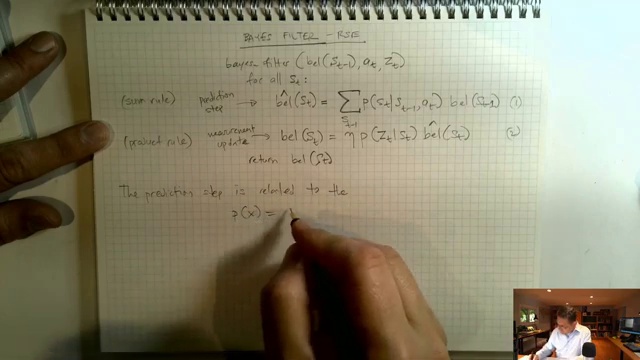 BAYES FILTER - RSE
bayes filter (bel(S_{t-1}), a_t, Z_t)
for all S_t:
(sum rule) prediction step → b̂el(S_t) = ∑_{S_{t-1}} p(S_t|S_{t-1}, a_t) bel(S_{t-1}) (1)
(product rule) measurement update → bel(S_t) = η p(Z_t|S_t) b̂el(S_t) (2)
return bel(S_t)
The prediction step is related to the
p(x) =